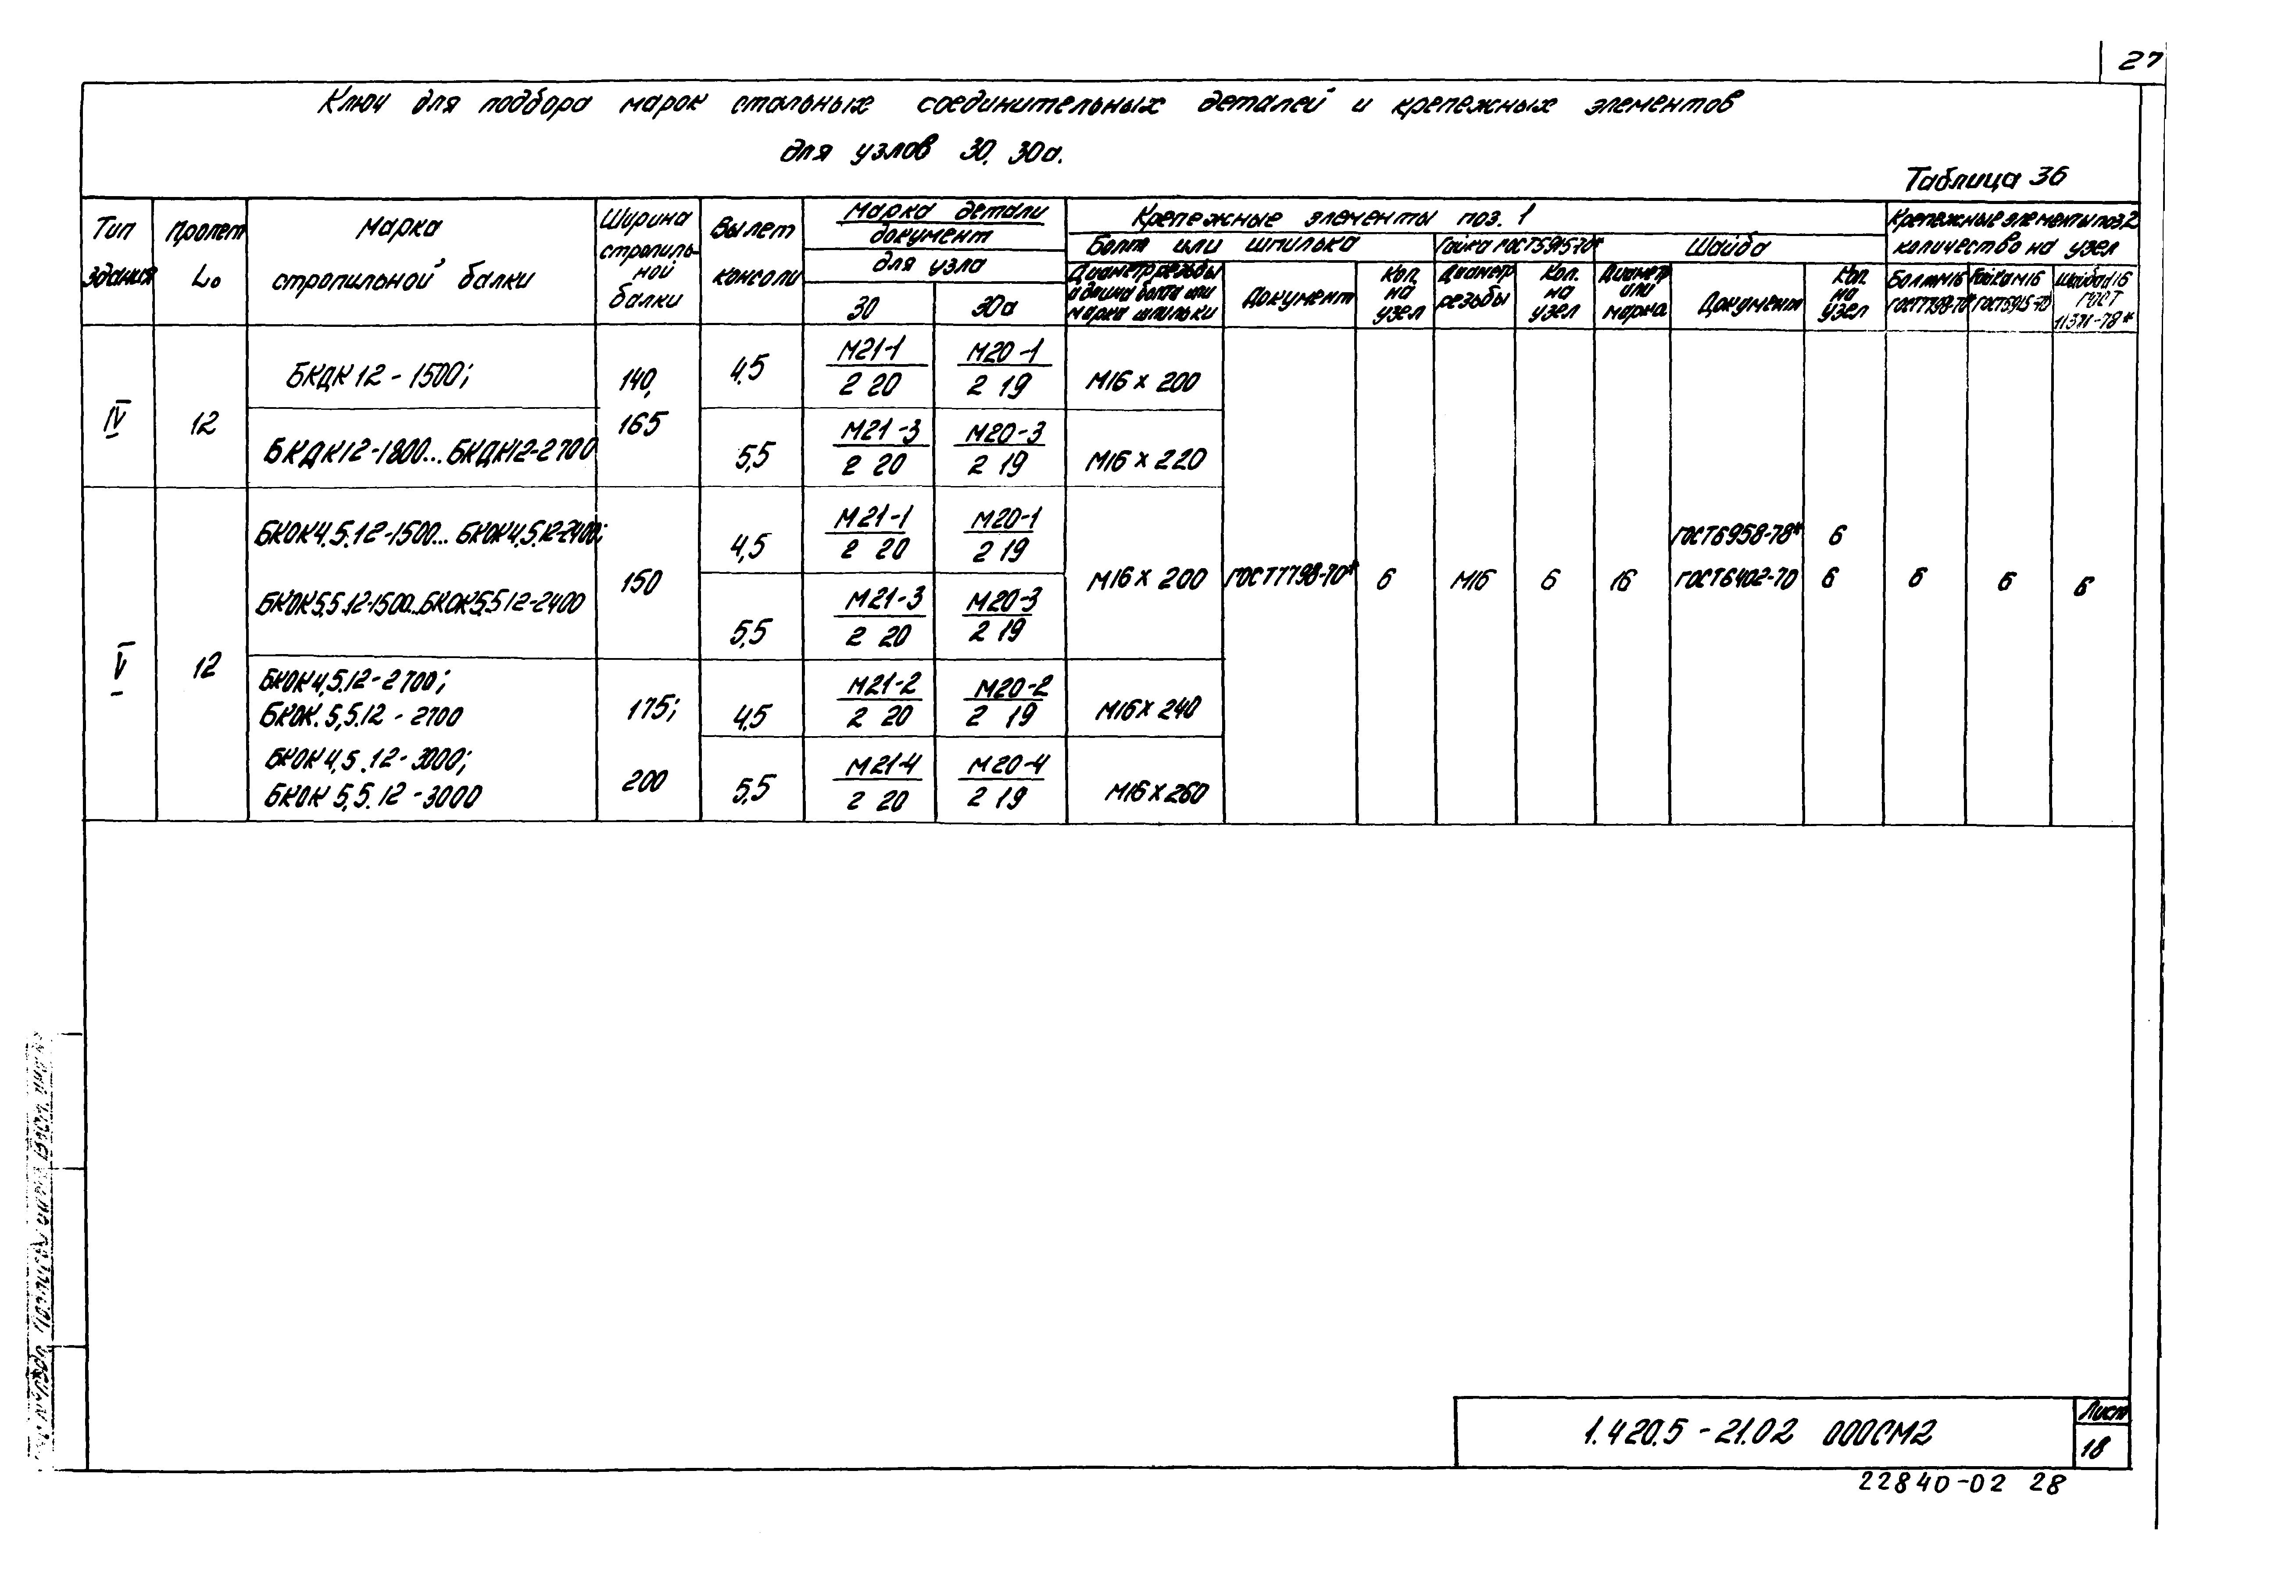 27
Ключ для подбора марок стальных соединительных деталей и крепежных элементов
для узлов 30, 30а.
Таблица 36
Тип здания
Пролет L₀
Марка стропильной балки
Ширина стропиль-
ной балки
Вылет консоли
Марка детали
документ
для узла
30 30а
Крепежные элементы поз. 1
Болт или шпилька
Диаметр резьбы и длина болта или марка шпильки
Документ
Кол. на узел
Гайка ГОСТ5915-70*
Диаметр резьбы
Кол. на узел
Шайба
Диаметр или марка
Документ
Кол. на узел
Крепежные элементы поз.2
количество на узел
Болт М16 ГОСТ7798-70
Гайка М16 ГОСТ5915-70
Шайба 16 ГОСТ 11371-78*
IV 12
БКДК12-1500; 140, 4,5 М21-1 М20-1 М16 х 200
2 20 2 19
165
БКДК12-1800...БКДК12-2700 5,5 М21-3 М20-3 М16 х 220
2 20 2 19
V 12
БКОК4,5.12-1500... БКОК4,5.12-2400; 4,5 М21-1 М20-1
2 20 2 19
ГОСТ6958-78* 6
150 М16 х 200 ГОСТ7798-70* 6 М16 6 16 ГОСТ6402-70 6 6 6 6
БКОК5,5.12-1500...БКОК5,5.12-2400 5,5 М21-3 М20-3
2 20 2 19
БКОК4,5.12-2700;
БКОК.5,5.12-2700 175; 4,5 М21-2 М20-2 М16х240
2 20 2 19
БКОК4,5.12-3000;
БКОК5,5.12-3000 200 5,5 М21-4 М20-4 М16х260
2 20 2 19
1.420.5-21.02 000СМ2
Лист
18
22840-02 28